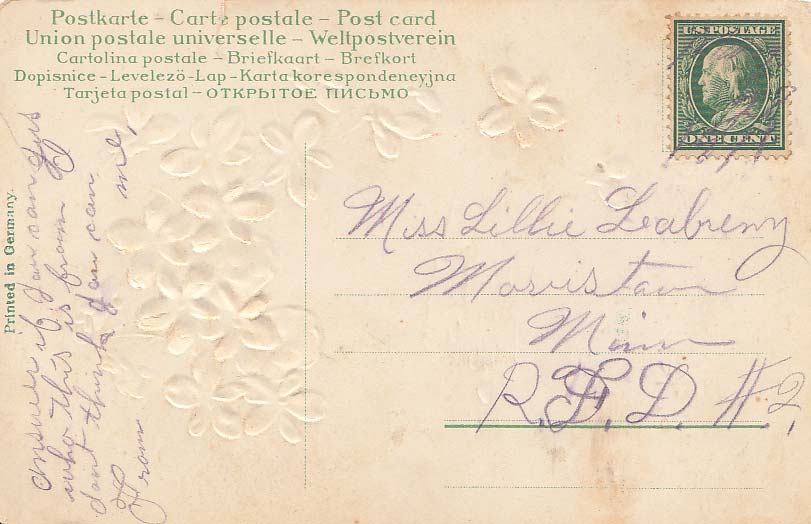 Postkarte – Carte postale – Post card
Union postale universelle – Weltpostverein
Cartolina postale – Briefkaart – Brefkort
Dopisnice – Levelezö-Lap – Karta korespondeneyjna
Tarjeta postal – ОТКРЫТОЕ ПИСЬМО
U.S. POSTAGE
ONE CENT
Printed in Germany.
answer if you can gues
who this is from
dont think you can
From me,
Miss Lillie
Morristown
Minn
R.F.D. #2,